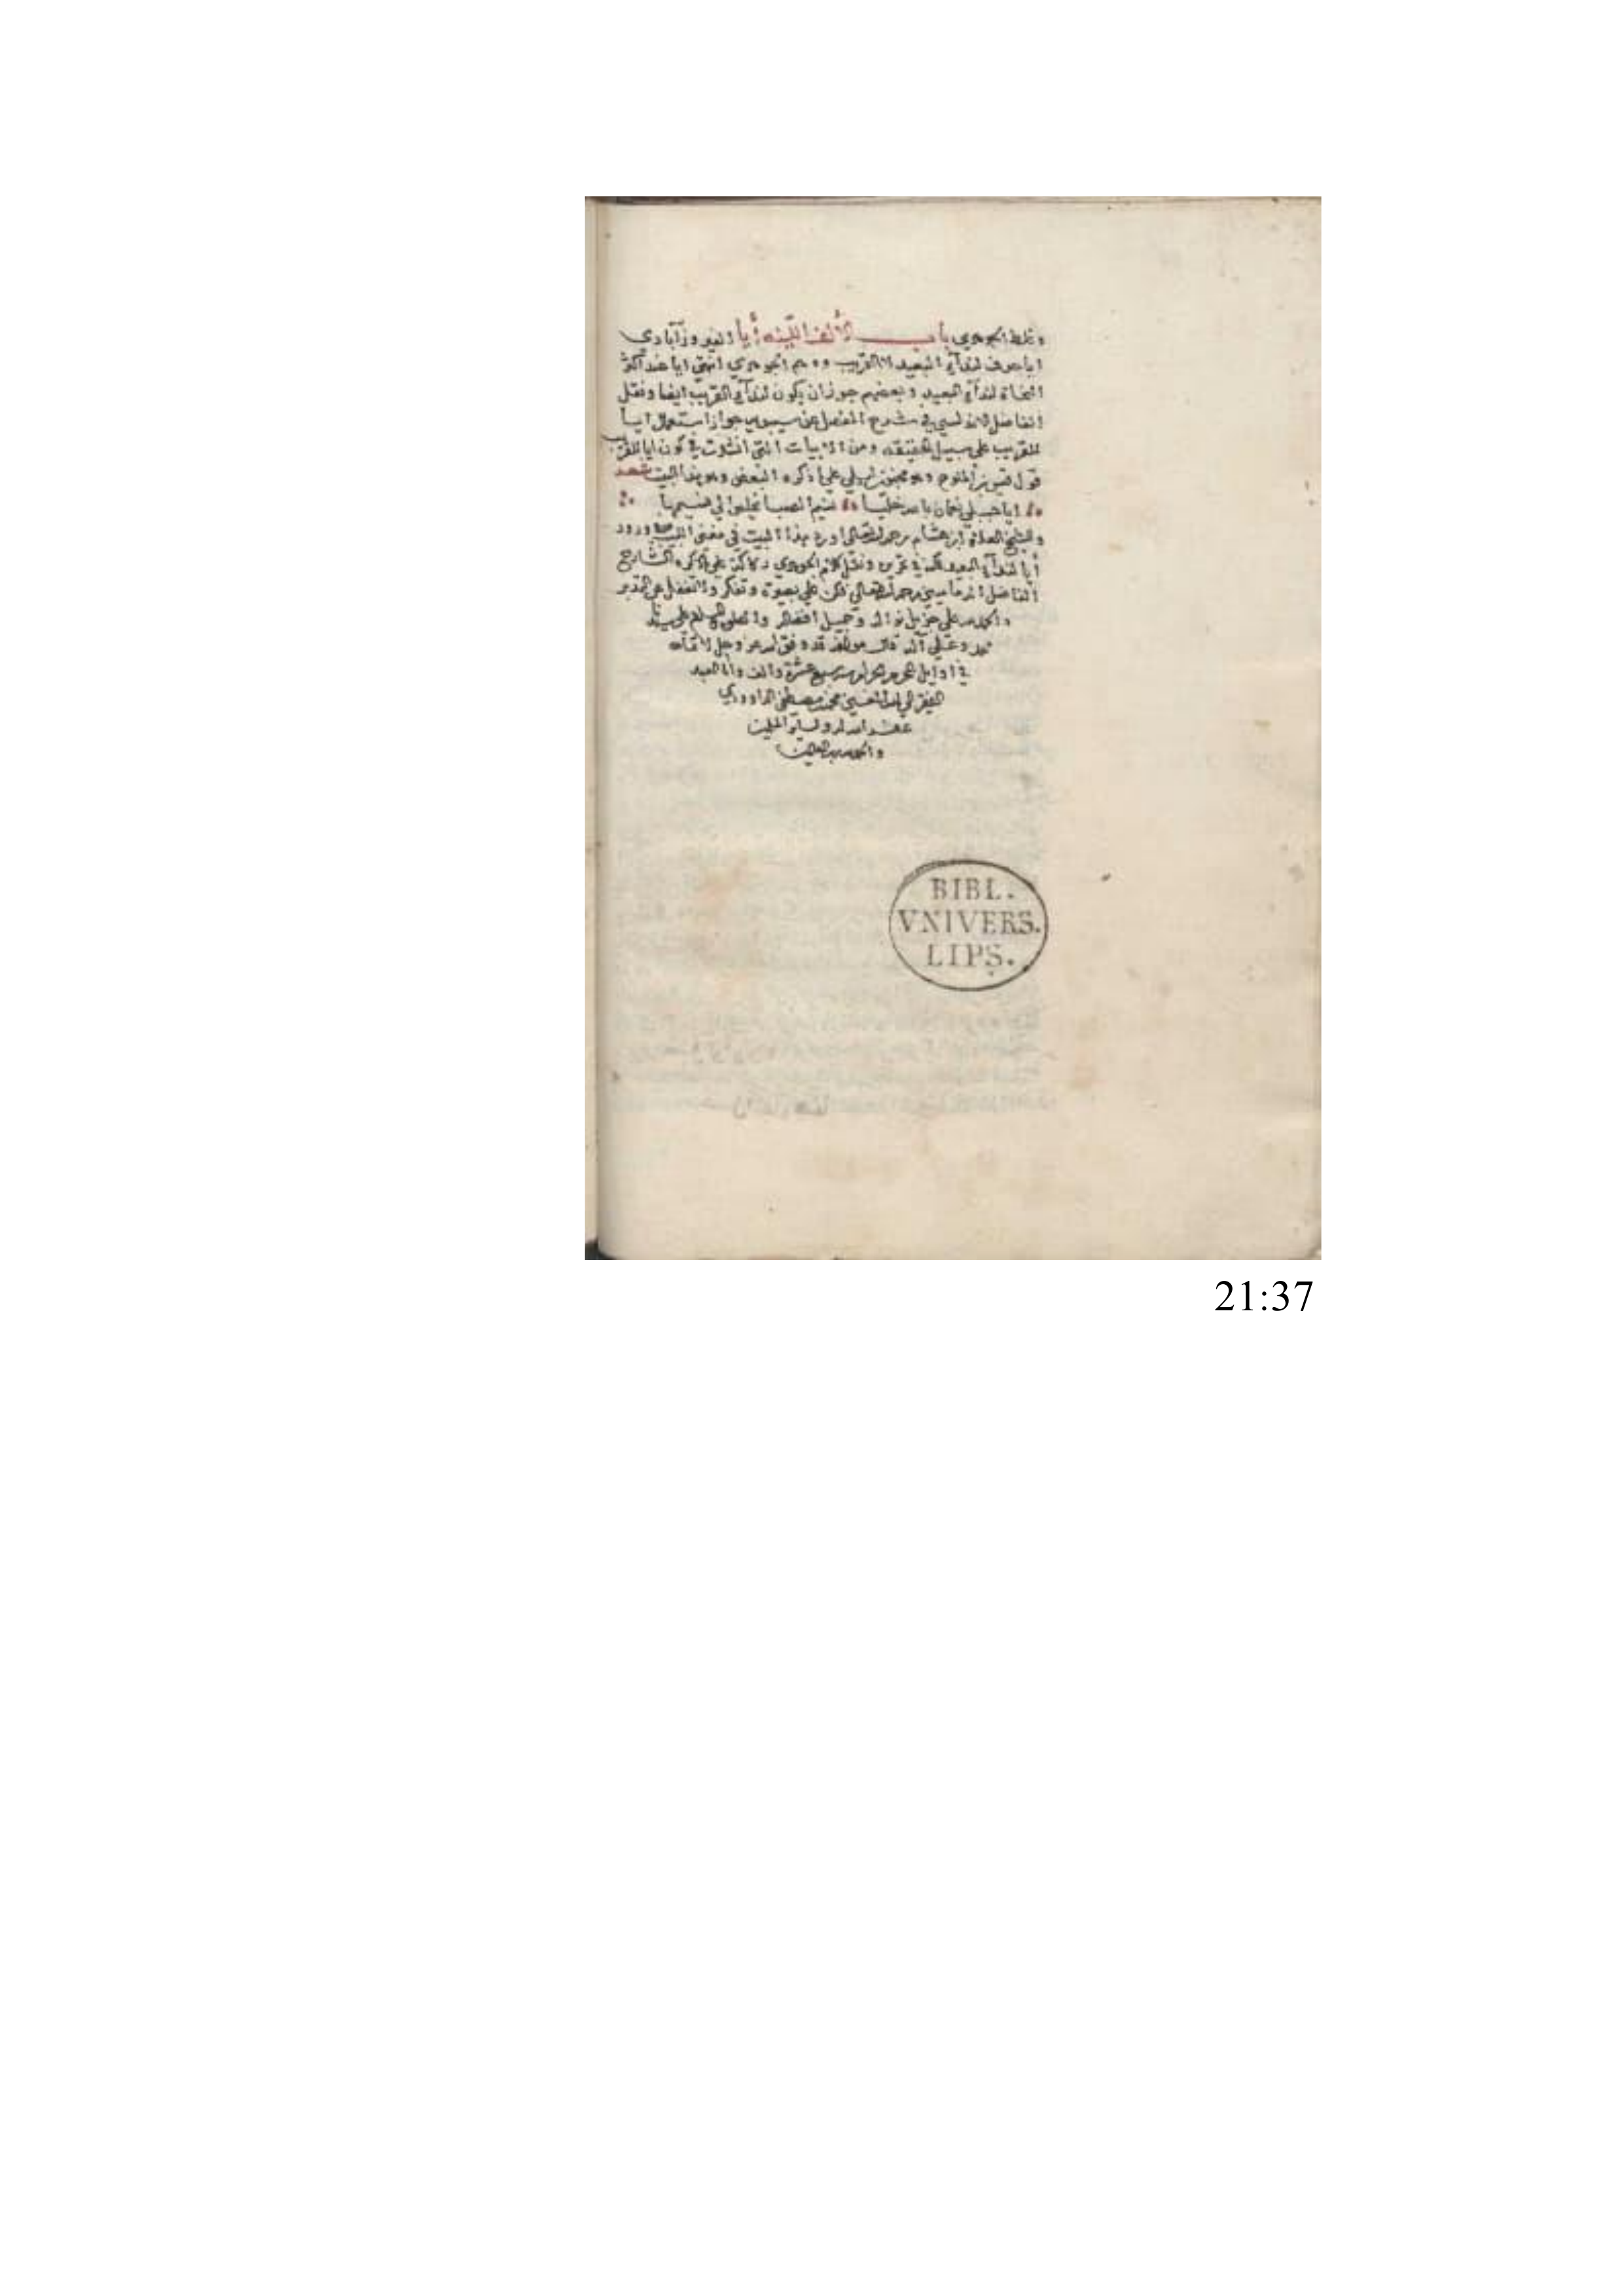 وغلط الجوهري باب الألف اللينة أيا الفيروزآبادي
ايا حرف لندآء البعيد لا القريب ووهم الجوهري انتهى ايا عند اكثر
النحاة لندآء البعيد وبعضهم جوز ان يكون لندآء القريب ايضا ونقل
الفاضل الاندلسي في شرح المفصل عن سيبويه جواز استعمال ايا
للقريب على سبيل الحقيقة ومن الابيات التي انشدت في كون ايا للقريب
قول قيس بن الملوح وهو مجنون ليلى على ما ذكره البعض وهو هذا البيت شعر
ايا جبلي نعمان بالله خليا نسيم الصبا يخلص الي نسيمها
والشيخ العلامة ابن هشام رحمه الله تعالى اورد هذا البيت في مغني اللبيب
أيا لندآء البعيد ونقل كلام الجوهري على ما ذكره الشارح
الفاضل الدماميني رحمه الله تعالى فكن على بصيرة وتفكر
والحمد لله على جزيل نواله وجميل افضاله والصلاة والسلام على سيدنا
محمد وعلى آله قال مؤلفه قد وفق الله عز وجل لاتمامه
في اوايل المحرم الحرام سنة سبع عشرة والف وانا العبد
الفقير الى الله الغني محمد بن مصطفى الداوودي
غفر الله له ولسائر المسلمين
والحمد لله رب العالمين
BIBL.
VNIVERS.
LIPS.
21:37